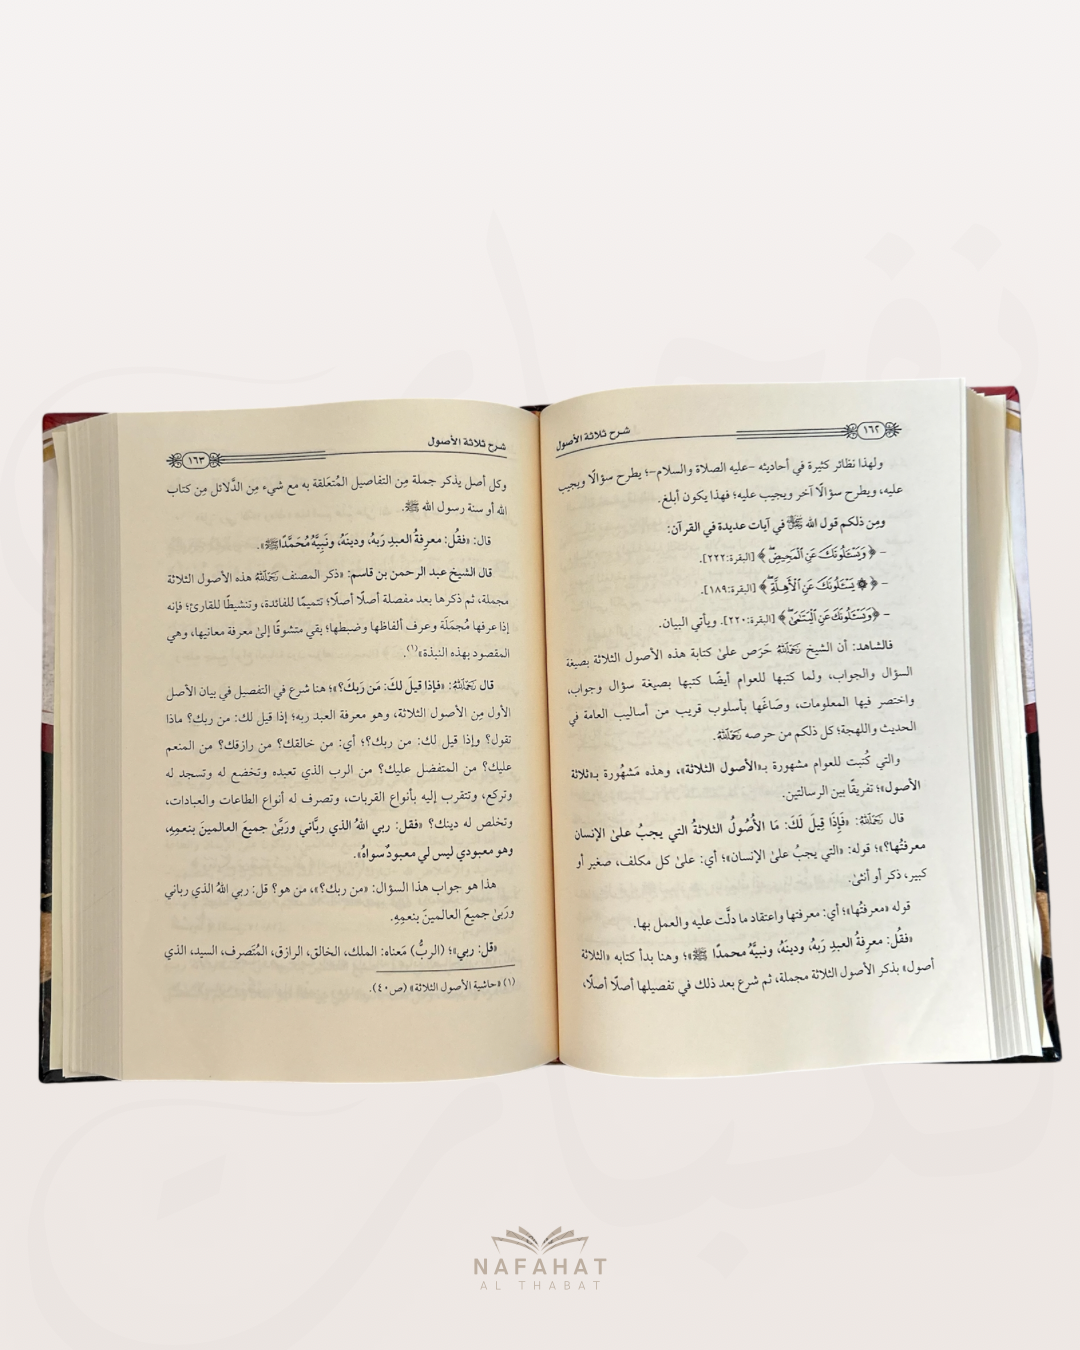 ١٦٢
شرح ثلاثة الأصول
ولهذا نظائر كثيرة في أحاديثه –عليه الصلاة والسلام–؛ يطرح سؤالًا ويجيب
عليه، ويطرح سؤالًا آخر ويجيب عليه؛ فهذا يكون أبلغ.
ومِن ذلكم قول الله ﷻ في آيات عديدة في القرآن:
– ﴿وَيَسْـَٔلُونَكَ عَنِ ٱلْمَحِيضِ ۖ﴾ [البقرة:٢٢٢].
– ﴿۞ يَسْـَٔلُونَكَ عَنِ ٱلْأَهِلَّةِ ۖ﴾ [البقرة:١٨٩].
– ﴿وَيَسْـَٔلُونَكَ عَنِ ٱلْيَتَـٰمَىٰ ۖ﴾ [البقرة:٢٢٠]. ويأتي البيان.
فالشاهد: أن الشيخ رَحِمَهُ ٱللَّهُ حَرَص علىٰ كتابة هذه الأصول الثلاثة بصيغة
السؤال والجواب، ولما كتبها للعوام أيضًا كتبها بصيغة سؤال وجواب،
واختصر فيها المعلومات، وصَاغَها بأسلوب قريب من أساليب العامة في
الحديث واللهجة؛ كل ذلكم من حرصه رَحِمَهُ ٱللَّهُ.
والتي كُتِبت للعوام مشهورة بـ«الأصول الثلاثة»، وهذه مَشهُورة بـ«ثلاثة
الأصول»؛ تفريقًا بين الرسالتين.
قال رَحِمَهُ ٱللَّهُ: «فَإِذَا قِيلَ لَكَ: مَا الأُصُولُ الثلاثةُ التي يجبُ علىٰ الإنسان
معرفتُها؟»؛ قوله: «التي يجبُ علىٰ الإنسان»؛ أي: علىٰ كل مكلف، صغير أو
كبير، ذكر أو أنثىٰ.
قوله «معرفتُها»؛ أي: معرفتها واعتقاد ما دلَّت عليه والعمل بها.
«فقُل: معرفةُ العبدِ رَبهُ، ودينَهُ، ونبيَّهُ محمدًا ﷺ»؛ وهنا بدأ كتابه «الثلاثة
أصول» بذكر الأصول الثلاثة مجملة، ثم شرع بعد ذلك في تفصيلها أصلًا أصلًا،
شرح ثلاثة الأصول
١٦٣
وكل أصل يذكر جملة مِن التفاصيل المُتعَلقة به مع شيء مِن الدَّلائل مِن كتاب
الله أو سنة رسول الله ﷺ.
قال: «فقُل: معرفةُ العبدِ رَبهُ، ودينَهُ، ونَبِيَّهُ مُحَمَّدًا ﷺ».
قال الشيخ عبد الرحمن بن قاسم: «ذكر المصنف رَحِمَهُ ٱللَّهُ هذه الأصول الثلاثة
مجملة، ثم ذكرها بعد مفصلة أصلًا أصلًا؛ تتميمًا للفائدة، وتنشيطًا للقارئ؛ فإنه
إذا عرفها مُجمَلَة وعرف ألفاظها وضبطها؛ بقي متشوقًا إلىٰ معرفة معانيها، وهي
المقصود بهذه النبذة»(١).
قال رَحِمَهُ ٱللَّهُ: «فإذا قيلَ لكَ: مَن رَبكَ؟»؛ هنا شرع في التفصيل في بيان الأصل
الأول مِن الأصول الثلاثة، وهو معرفة العبد ربه؛ إذا قيل لك: من ربك؟ ماذا
تقول؟ وإذا قيل لك: من ربك؟؛ أي: من خالقك؟ من رازقك؟ من المنعم
عليك؟ من المتفضل عليك؟ من الرب الذي تعبده وتخضع له وتسجد له
وتركع، وتتقرب إليه بأنواع القربات، وتصرف له أنواع الطاعات والعبادات،
وتخلص له دينك؟ «فقل: ربي اللهُ الذي ربَّاني ورَبَّىٰ جميعَ العالمينَ بنعمِهِ،
وهو معبودي ليس لي معبودٌ سواهُ».
هذا هو جواب هذا السؤال: «من ربك؟»، من هو؟ قل: ربي اللهُ الذي رباني
ورَبىٰ جميعَ العالمينَ بنعمِهِ.
«قل: ربي»؛ (الربُّ) مَعناه: الملك، الخالق، الرازق، المُتَصرف، السيد، الذي
(١) «حاشية الأصول الثلاثة» (ص٤٠).
NAFAHAT
AL THABAT